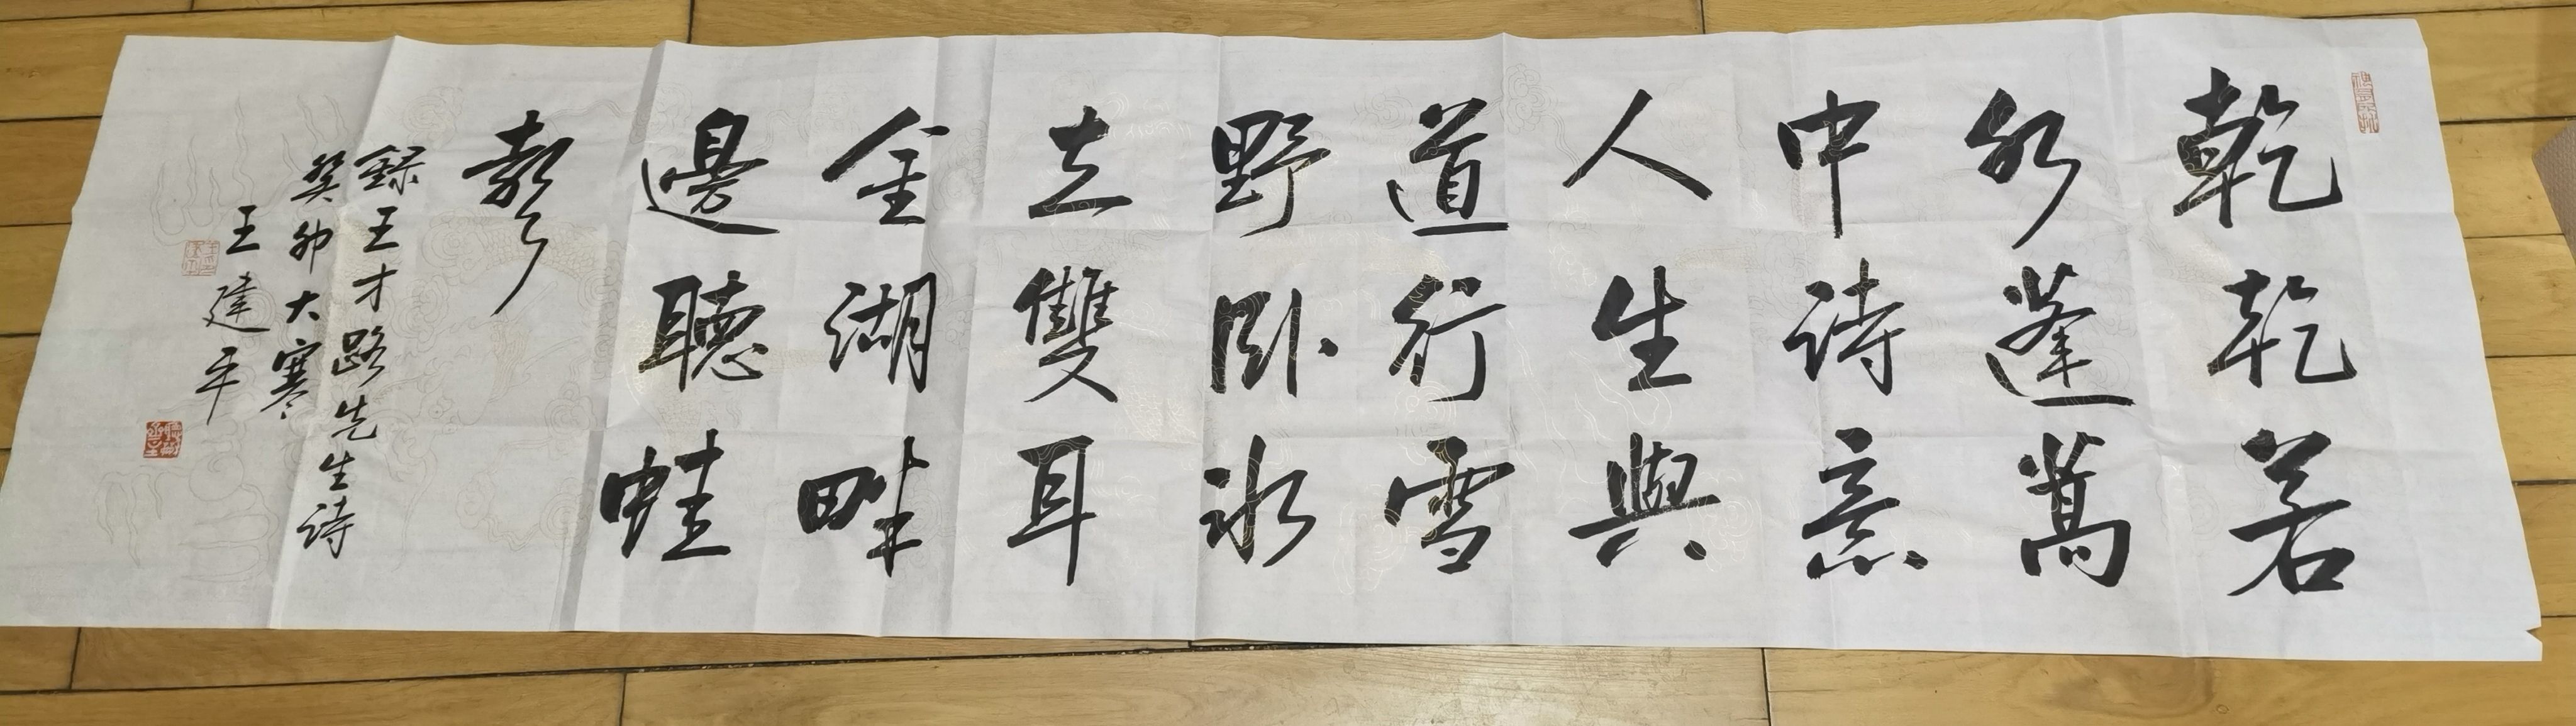 乾乾若
水蓬蒿
中詩意
人生與
道行雪
野臥冰
立雙耳
金湖畔
邊聽蛙
聲
錄王才路先生詩
癸卯大寒
王建平